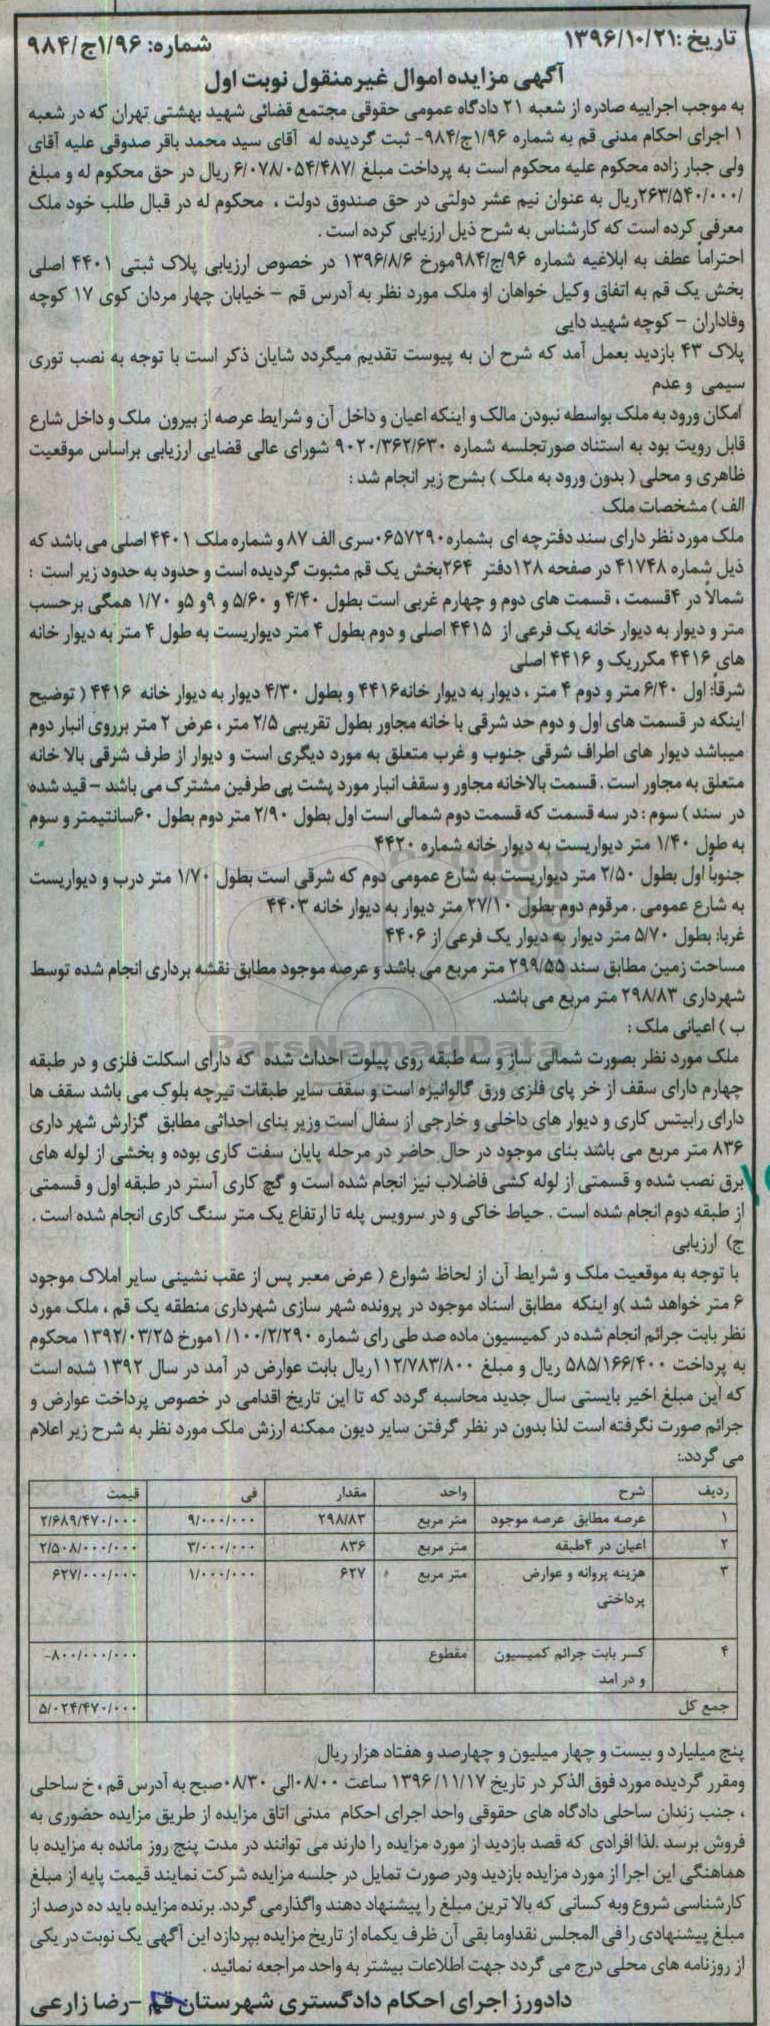 تاریخ :۱۳۹۶/۱۰/۲۱
شماره: ۱/۹۶ج/۹۸۴
آگهی مزایده اموال غیرمنقول نوبت اول
به موجب اجراییه صادره از شعبه ۲۱ دادگاه عمومی حقوقی مجتمع قضائی شهید بهشتی تهران که در شعبه
۱ اجرای احکام مدنی قم به شماره ۱/۹۶ج/۹۸۴- ثبت گردیده له آقای سید محمد باقر صدوقی علیه آقای
ولی جبار زاده محکوم علیه محکوم است به پرداخت مبلغ /۶/۰۷۸/۰۵۴/۴۸۷ ریال در حق محکوم له و مبلغ
/۲۶۳/۵۴۰/۰۰۰ریال به عنوان نیم عشر دولتی در حق صندوق دولت ، محکوم له در قبال طلب خود ملک
معرفی کرده است که کارشناس به شرح ذیل ارزیابی کرده است .
احتراماً عطف به ابلاغیه شماره ۹۶/ج/۹۸۴مورخ ۱۳۹۶/۸/۶ در خصوص ارزیابی پلاک ثبتی ۴۴۰۱ اصلی
بخش یک قم به اتفاق وکیل خواهان او ملک مورد نظر به آدرس قم - خیابان چهار مردان کوی ۱۷ کوچه
وفاداران - کوچه شهید دایی
پلاک ۴۳ بازدید بعمل آمد که شرح ان به پیوست تقدیم میگردد شایان ذکر است با توجه به نصب توری
سیمی و عدم
امکان ورود به ملک بواسطه نبودن مالک و اینکه اعیان و داخل آن و شرایط عرصه از بیرون ملک و داخل شارع
قابل رویت بود به استناد صورتجلسه شماره ۹۰۲۰/۳۶۲/۶۳۰ شورای عالی قضایی ارزیابی براساس موقعیت
ظاهری و محلی ( بدون ورود به ملک ) بشرح زیر انجام شد :
الف ) مشخصات ملک
ملک مورد نظر دارای سند دفترچه ای بشماره۰۶۵۷۲۹۰سری الف ۸۷ و شماره ملک ۴۴۰۱ اصلی می باشد که
ذیل شماره ۴۱۷۴۸ در صفحه ۱۲۸دفتر ۲۶۴بخش یک قم مثبوت گردیده است و حدود به حدود زیر است :
شمالاً در ۴قسمت ، قسمت های دوم و چهارم غربی است بطول ۴/۴۰ و ۵/۶۰ و ۹و ۵و ۱/۷۰ همگی برحسب
متر و دیوار به دیوار خانه یک فرعی از ۴۴۱۵ اصلی و دوم بطول ۴ متر دیواریست به طول ۴ متر به دیوار خانه
های ۴۴۱۶ مکرریک و ۴۴۱۶ اصلی
شرقاً: اول ۶/۴۰ متر و دوم ۴ متر ، دیوار به دیوار خانه۴۴۱۶ و بطول ۴/۳۰ دیوار به دیوار خانه ۴۴۱۶ ( توضیح
اینکه در قسمت های اول و دوم حد شرقی با خانه مجاور بطول تقریبی ۲/۵ متر ، عرض ۲ متر برروی انبار دوم
میباشد دیوار های اطراف شرقی جنوب و غرب متعلق به مورد دیگری است و دیوار از طرف شرقی بالا خانه
متعلق به مجاور است . قسمت بالاخانه مجاور و سقف انبار مورد پشت پی طرفین مشترک می باشد - قید شده
در سند ) سوم : در سه قسمت که قسمت دوم شمالی است اول بطول ۲/۹۰ متر دوم بطول ۶۰سانتیمتر و سوم
به طول ۱/۴۰ متر دیواریست به دیوار خانه شماره ۴۴۲۰
جنوباً اول بطول ۲/۵۰ متر دیواریست به شارع عمومی دوم که شرقی است بطول ۱/۷۰ متر درب و دیواریست
به شارع عمومی . مرقوم دوم بطول ۲۷/۱۰ متر دیوار به دیوار خانه ۴۴۰۳
غربا: بطول ۵/۷۰ متر دیوار به دیوار یک فرعی از ۴۴۰۶
مساحت زمین مطابق سند ۲۹۹/۵۵ متر مربع می باشد و عرصه موجود مطابق نقشه برداری انجام شده توسط
شهرداری ۲۹۸/۸۳ متر مربع می باشد.
ParsNamadData
ب ) اعیانی ملک :
ملک مورد نظر بصورت شمالی ساز و سه طبقه روی پیلوت احداث شده که دارای اسکلت فلزی و در طبقه
چهارم دارای سقف از خر پای فلزی ورق گالوانیزه است و سقف سایر طبقات تیرچه بلوک می باشد سقف ها
دارای رابیتس کاری و دیوار های داخلی و خارجی از سفال است وزیر بنای احداثی مطابق گزارش شهر داری
۸۳۶ متر مربع می باشد بنای موجود در حال حاضر در مرحله پایان سفت کاری بوده و بخشی از لوله های
برق نصب شده و قسمتی از لوله کشی فاضلاب نیز انجام شده است و گچ کاری آستر در طبقه اول و قسمتی
از طبقه دوم انجام شده است . حیاط خاکی و در سرویس پله تا ارتفاع یک متر سنگ کاری انجام شده است .
ج) ارزیابی
با توجه به موقعیت ملک و شرایط آن از لحاظ شوارع ( عرض معبر پس از عقب نشینی سایر املاک موجود
۶ متر خواهد شد )و اینکه مطابق اسناد موجود در پرونده شهر سازی شهرداری منطقه یک قم ، ملک مورد
نظر بابت جرائم انجام شده در کمیسیون ماده صد طی رای شماره ۱/۱۰۰/۲/۲۹۰مورخ ۱۳۹۲/۰۳/۲۵ محکوم
به پرداخت ۵۸۵/۱۶۶/۴۰۰ ریال و مبلغ ۱۱۲/۷۸۳/۸۰۰ریال بابت عوارض در آمد در سال ۱۳۹۲ شده است
که این مبلغ اخیر بایستی سال جدید محاسبه گردد که تا این تاریخ اقدامی در خصوص پرداخت عوارض و
جرائم صورت نگرفته است لذا بدون در نظر گرفتن سایر دیون ممکنه ارزش ملک مورد نظر به شرح زیر اعلام
می گردد:
ردیف شرح واحد مقدار فی قیمت
۱ عرصه مطابق عرصه موجود متر مربع ۲۹۸/۸۳ ۹/۰۰۰/۰۰۰ ۲/۶۸۹/۴۷۰/۰۰۰
۲ اعیان در ۴طبقه متر مربع ۸۳۶ ۳/۰۰۰/۰۰۰ ۲/۵۰۸/۰۰۰/۰۰۰
۳ هزینه پروانه و عوارض متر مربع ۶۲۷ ۱/۰۰۰/۰۰۰ ۶۲۷/۰۰۰/۰۰۰
پرداختی
۴ کسر بابت جرائم کمیسیون مقطوع ۸۰۰/۰۰۰/۰۰۰-
و در امد
جمع کل ۵/۰۲۴/۴۷۰/۰۰۰
پنج میلیارد و بیست و چهار میلیون و چهارصد و هفتاد هزار ریال
ومقرر گردیده مورد فوق الذکر در تاریخ ۱۳۹۶/۱۱/۱۷ ساعت ۰۸/۰۰الی ۰۸/۳۰صبح به آدرس قم ، خ ساحلی
، جنب زندان ساحلی دادگاه های حقوقی واحد اجرای احکام مدنی اتاق مزایده از طریق مزایده حضوری به
فروش برسد .لذا افرادی که قصد بازدید از مورد مزایده را دارند می توانند در مدت پنج روز مانده به مزایده با
هماهنگی این اجرا از مورد مزایده بازدید ودر صورت تمایل در جلسه مزایده شرکت نمایند قیمت پایه از مبلغ
کارشناسی شروع وبه کسانی که بالا ترین مبلغ را پیشنهاد دهند واگذارمی گردد. برنده مزایده باید ده درصد از
مبلغ پیشنهادی را فی المجلس نقداوما بقی آن ظرف یکماه از تاریخ مزایده بپردازد این آگهی یک نوبت در یکی
از روزنامه های محلی درج می گردد جهت اطلاعات بیشتر به واحد مراجعه نمائید .
دادورز اجرای احکام دادگستری شهرستان قم -رضا زارعی